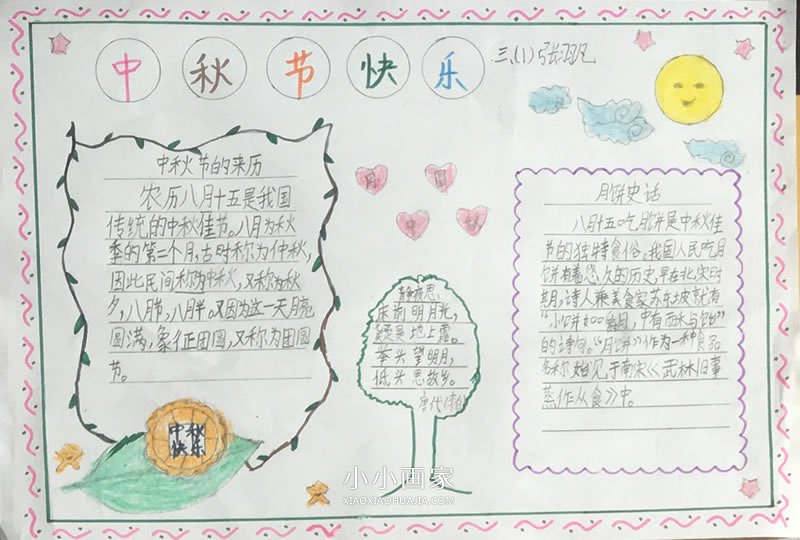 中秋节快乐
三、(1)张
中秋节的来历
农历八月十五是我国
传统的中秋佳节。八月为秋
季的第二个月,古时称为仲秋,
因此民间称为中秋,又称为秋
夕,八节,八月半。又因为这一天月亮
圆满,象征团圆,又称为团圆
节。
月 圆
中 秋
静夜思,
床前明月光,
疑是地上霜。
举头望明月,
低头思故乡。
唐代
月饼史话
八月十五吃月饼是中秋佳
节的独特食俗,我国人民吃月
饼有着悠久的历史,早在北宋时
期,诗人兼美食家苏东坡就有
“小饼如嚼月,中有酥与饴”
的诗句。“月饼”作为一种食品
名称始见于南宋《武林旧事
蒸作从食》中。
中秋
快乐
小小画家
XIAOXIAOHUAJIA.COM